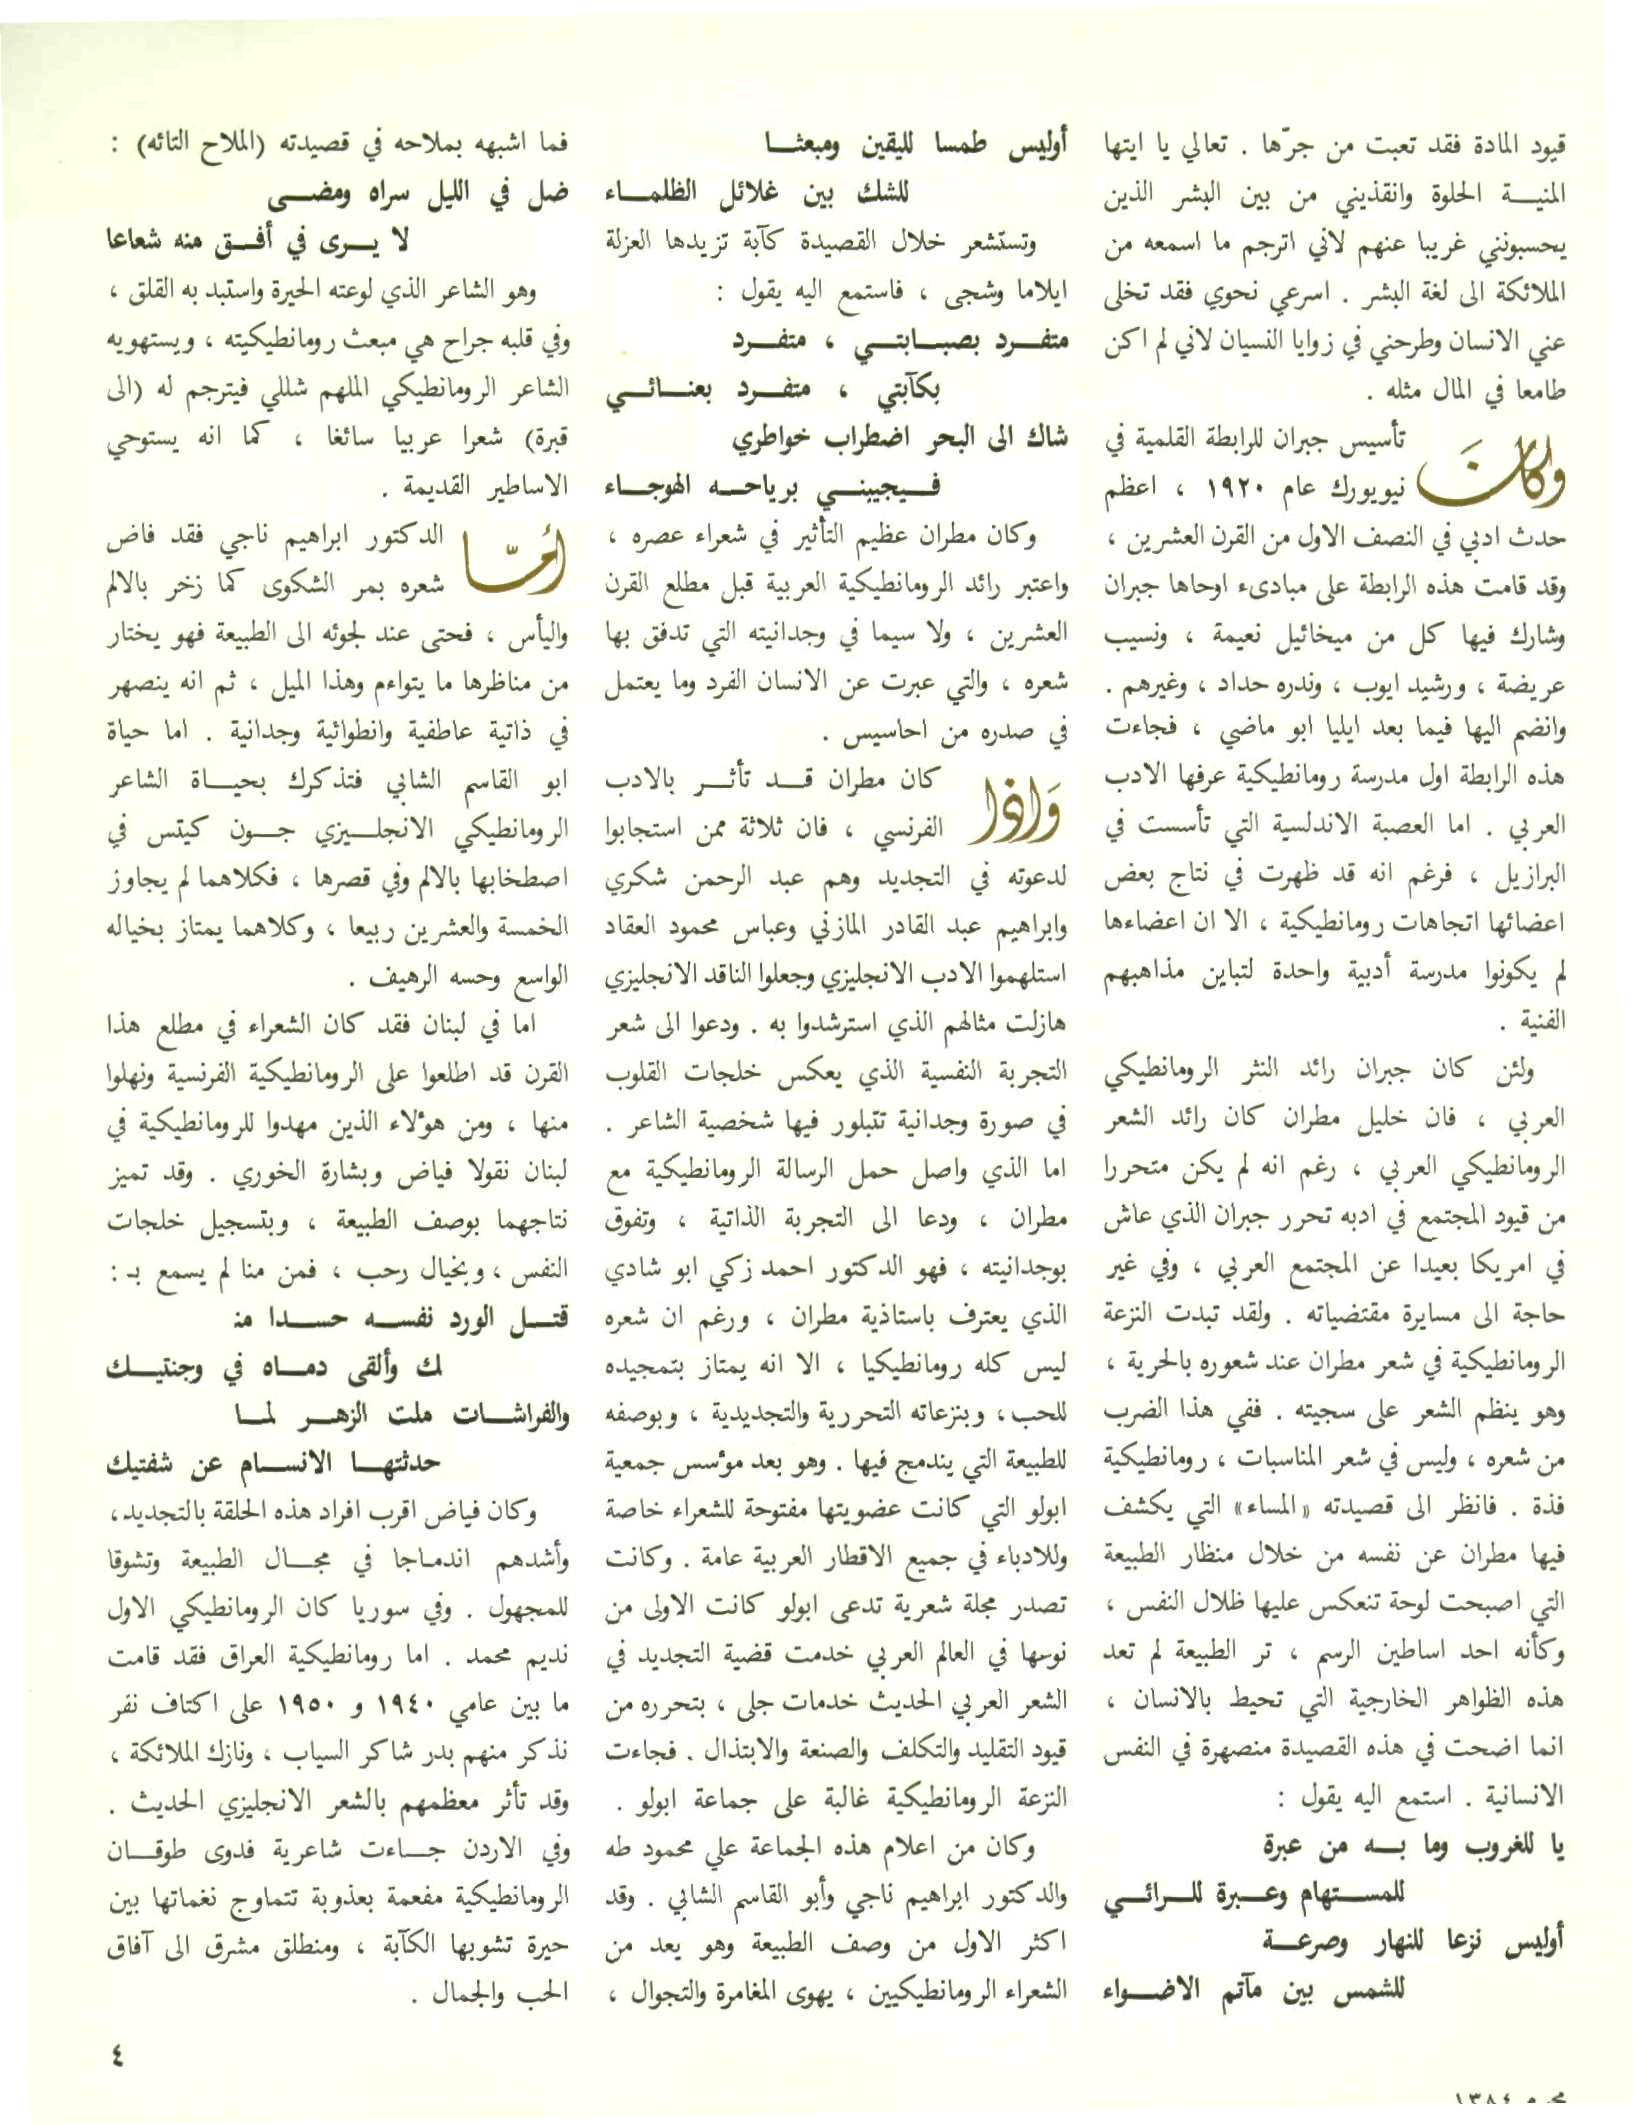 قيود المادة فقد تعبت من جرّها . تعالي يا ايتها
المنيــة الحلوة وانقذيني من بين البشر الذين
يحسبونني غريبا عنهم لاني اترجم ما اسمعه من
الملائكة الى لغة البشر . اسرعي نحوي فقد تخلى
عني الانسان وطرحني في زوايا النسيان لاني لم اكن
طامعا في المال مثله .
وكانَ تأسيس جبران للرابطة القلمية في
نيويورك عام ١٩٢٠ ، اعظم
حدث ادبي في النصف الاول من القرن العشرين ،
وقد قامت هذه الرابطة على مبادىء اوحاها جبران
وشارك فيها كل من ميخائيل نعيمة ، ونسيب
عريضة ، ورشيد ايوب ، وندره حداد ، وغيرهم .
وانضم اليها فيما بعد ايليا ابو ماضي ، فجاءت
هذه الرابطة اول مدرسة رومانطيكية عرفها الادب
العربي . اما العصبة الاندلسية التي تأسست في
البرازيل ، فرغم انه قد ظهرت في نتاج بعض
اعضائها اتجاهات رومانطيكية ، الا ان اعضاءها
لم يكونوا مدرسة أدبية واحدة لتباين مذاهبهم
الفنية .
ولئن كان جبران رائد النثر الرومانطيكي
العربي ، فان خليل مطران كان رائد الشعر
الرومانطيكي العربي ، رغم انه لم يكن متحررا
من قيود المجتمع في ادبه تحرر جبران الذي عاش
في امريكا بعيدا عن المجتمع العربي ، وفي غير
حاجة الى مسايرة مقتضياته . ولقد تبدت النزعة
الرومانطيكية في شعر مطران عند شعوره بالحرية ،
وهو ينظم الشعر على سجيته . ففي هذا الضرب
من شعره ، وليس في شعر المناسبات ، رومانطيكية
فذة . فانظر الى قصيدته «المساء» التي يكشف
فيها مطران عن نفسه من خلال منظار الطبيعة
التي اصبحت لوحة تنعكس عليها ظلال النفس ،
وكأنه احد اساطين الرسم ، تر الطبيعة لم تعد
هذه الظواهر الخارجية التي تحيط بالانسان ،
انما اضحت في هذه القصيدة منصهرة في النفس
الانسانية . استمع اليه يقول :
يا للغروب وما بـــه من عبرة
للمســتهام وعــبرة للــرائــي
أوليس نزعا للنهار وصرعــة
للشمس بين مآتم الاضــواء
أوليس طمسا لليقين ومبعثــا
للشك بين غلائل الظلمــاء
وتستشعر خلال القصيدة كآبة تزيدها العزلة
ايلاما وشجى ، فاستمع اليه يقول :
متفــرد بصبــابتــي ، متفــرد
بكآبتي ، متفــرد بعنــائــي
شاك الى البحر اضطراب خواطري
فــيجيبنــي برياحــه الهوجــاء
وكان مطران عظيم التأثير في شعراء عصره ،
واعتبر رائد الرومانطيكية العربية قبل مطلع القرن
العشرين ، ولا سيما في وجدانيته التي تدفق بها
شعره ، والتي عبرت عن الانسان الفرد وما يعتمل
في صدره من احاسيس .
وَاذا كان مطران قــد تأثــر بالادب
الفرنسي ، فان ثلاثة ممن استجابوا
لدعوته في التجديد وهم عبد الرحمن شكري
وابراهيم عبد القادر المازني وعباس محمود العقاد
استلهموا الادب الانجليزي وجعلوا الناقد الانجليزي
هازلت مثالهم الذي استرشدوا به . ودعوا الى شعر
التجربة النفسية الذي يعكس خلجات القلوب
في صورة وجدانية تتبلور فيها شخصية الشاعر .
اما الذي واصل حمل الرسالة الرومانطيكية مع
مطران ، ودعا الى التجربة الذاتية ، وتفوق
بوجدانيته ، فهو الدكتور احمد زكي ابو شادي
الذي يعترف باستاذية مطران ، ورغم ان شعره
ليس كله رومانطيكيا ، الا انه يمتاز بتمجيده
للحب، وبنزعاته التحررية والتجديدية ، وبوصفه
للطبيعة التي يندمج فيها . وهو بعد مؤسس جمعية
ابولو التي كانت عضويتها مفتوحة للشعراء خاصة
وللادباء في جميع الاقطار العربية عامة . وكانت
تصدر مجلة شعرية تدعى ابولو كانت الاولى من
نوعها في العالم العربي خدمت قضية التجديد في
الشعر العربي الحديث خدمات جلى ، بتحرره من
قيود التقليد والتكلف والصنعة والابتذال . فجاءت
النزعة الرومانطيكية غالبة على جماعة ابولو .
وكان من اعلام هذه الجماعة علي محمود طه
والدكتور ابراهيم ناجي وأبو القاسم الشابي . وقد
اكثر الاول من وصف الطبيعة وهو يعد من
الشعراء الرومانطيكيين ، يهوى المغامرة والتجوال ،
فما اشبهه بملاحه في قصيدته (الملاح التائه) :
ضل في الليل سراه ومضــى
لا يــرى في أفــق منه شعاعا
وهو الشاعر الذي لوعته الحيرة واستبد به القلق ،
وفي قلبه جراح هي مبعث رومانطيكيته ، ويستهويه
الشاعر الرومانطيكي الملهم شللي فيترجم له (الى
قبرة) شعرا عربيا سائغا ، كما انه يستوحي
الاساطير القديمة .
أمّا الدكتور ابراهيم ناجي فقد فاض
شعره بمر الشكوى كما زخر بالالم
واليأس ، فحتى عند لجوئه الى الطبيعة فهو يختار
من مناظرها ما يتواءم وهذا الميل ، ثم انه ينصهر
في ذاتية عاطفية وانطوائية وجدانية . اما حياة
ابو القاسم الشابي فتذكرك بحيــاة الشاعر
الرومانطيكي الانجلــيزي جــون كيتس في
اصطخابها بالالم وفي قصرها ، فكلاهما لم يجاوز
الخمسة والعشرين ربيعا ، وكلاهما يمتاز بخياله
الواسع وحسه الرهيف .
اما في لبنان فقد كان الشعراء في مطلع هذا
القرن قد اطلعوا على الرومانطيكية الفرنسية ونهلوا
منها ، ومن هؤلاء الذين مهدوا للرومانطيكية في
لبنان نقولا فياض وبشارة الخوري . وقد تميز
نتاجهما بوصف الطبيعة ، وبتسجيل خلجات
النفس ، وبخيال رحب ، فمن منا لم يسمع بـ :
قتــل الورد نفســه حســدا منـ
ك وألقى دمــاه في وجنتيــك
والفراشــات ملت الزهــر لمــا
حدثتهــا الانســام عن شفتيك
وكان فياض اقرب افراد هذه الحلقة بالتجديد،
وأشدهم اندمـاجا في مجــال الطبيعة وتشوقا
للمجهول . وفي سوريا كان الرومانطيكي الاول
نديم محمد . اما رومانطيكية العراق فقد قامت
ما بين عامي ١٩٤٠ و ١٩٥٠ على اكتاف نفر
نذكر منهم بدر شاكر السياب ، ونازك الملائكة ،
وقد تأثر معظمهم بالشعر الانجليزي الحديث .
وفي الاردن جــاءت شاعرية فدوى طوقــان
الرومانطيكية مفعمة بعذوبة تتماوج نغماتها بين
حيرة تشوبها الكآبة ، ومنطلق مشرق الى آفاق
الحب والجمال .
٤
محرم ١٣٨٤